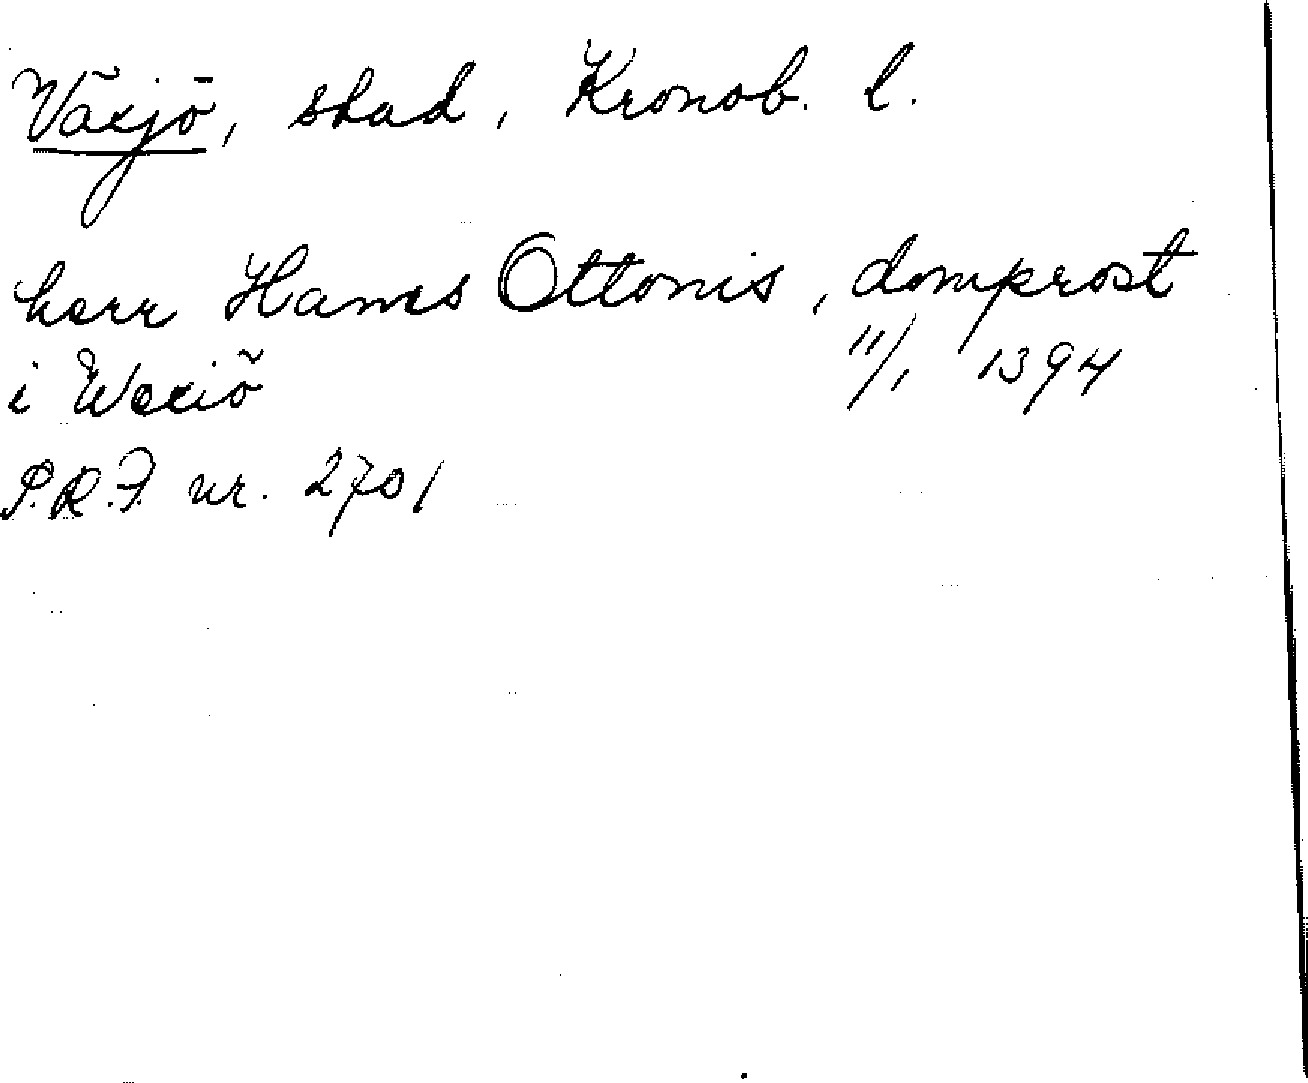 Växjö, stad, Kronob. l.
herr Hanes Ottonis, domprost
i Wexiö 11/1 1394
P.R.F. nr. 2701